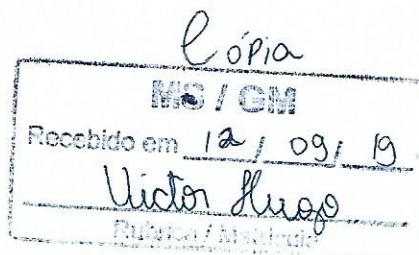 Cópia
MS / GM
Recebido em 12 / 09 / 19
Victor Hugo
Rubrica / Matrícula